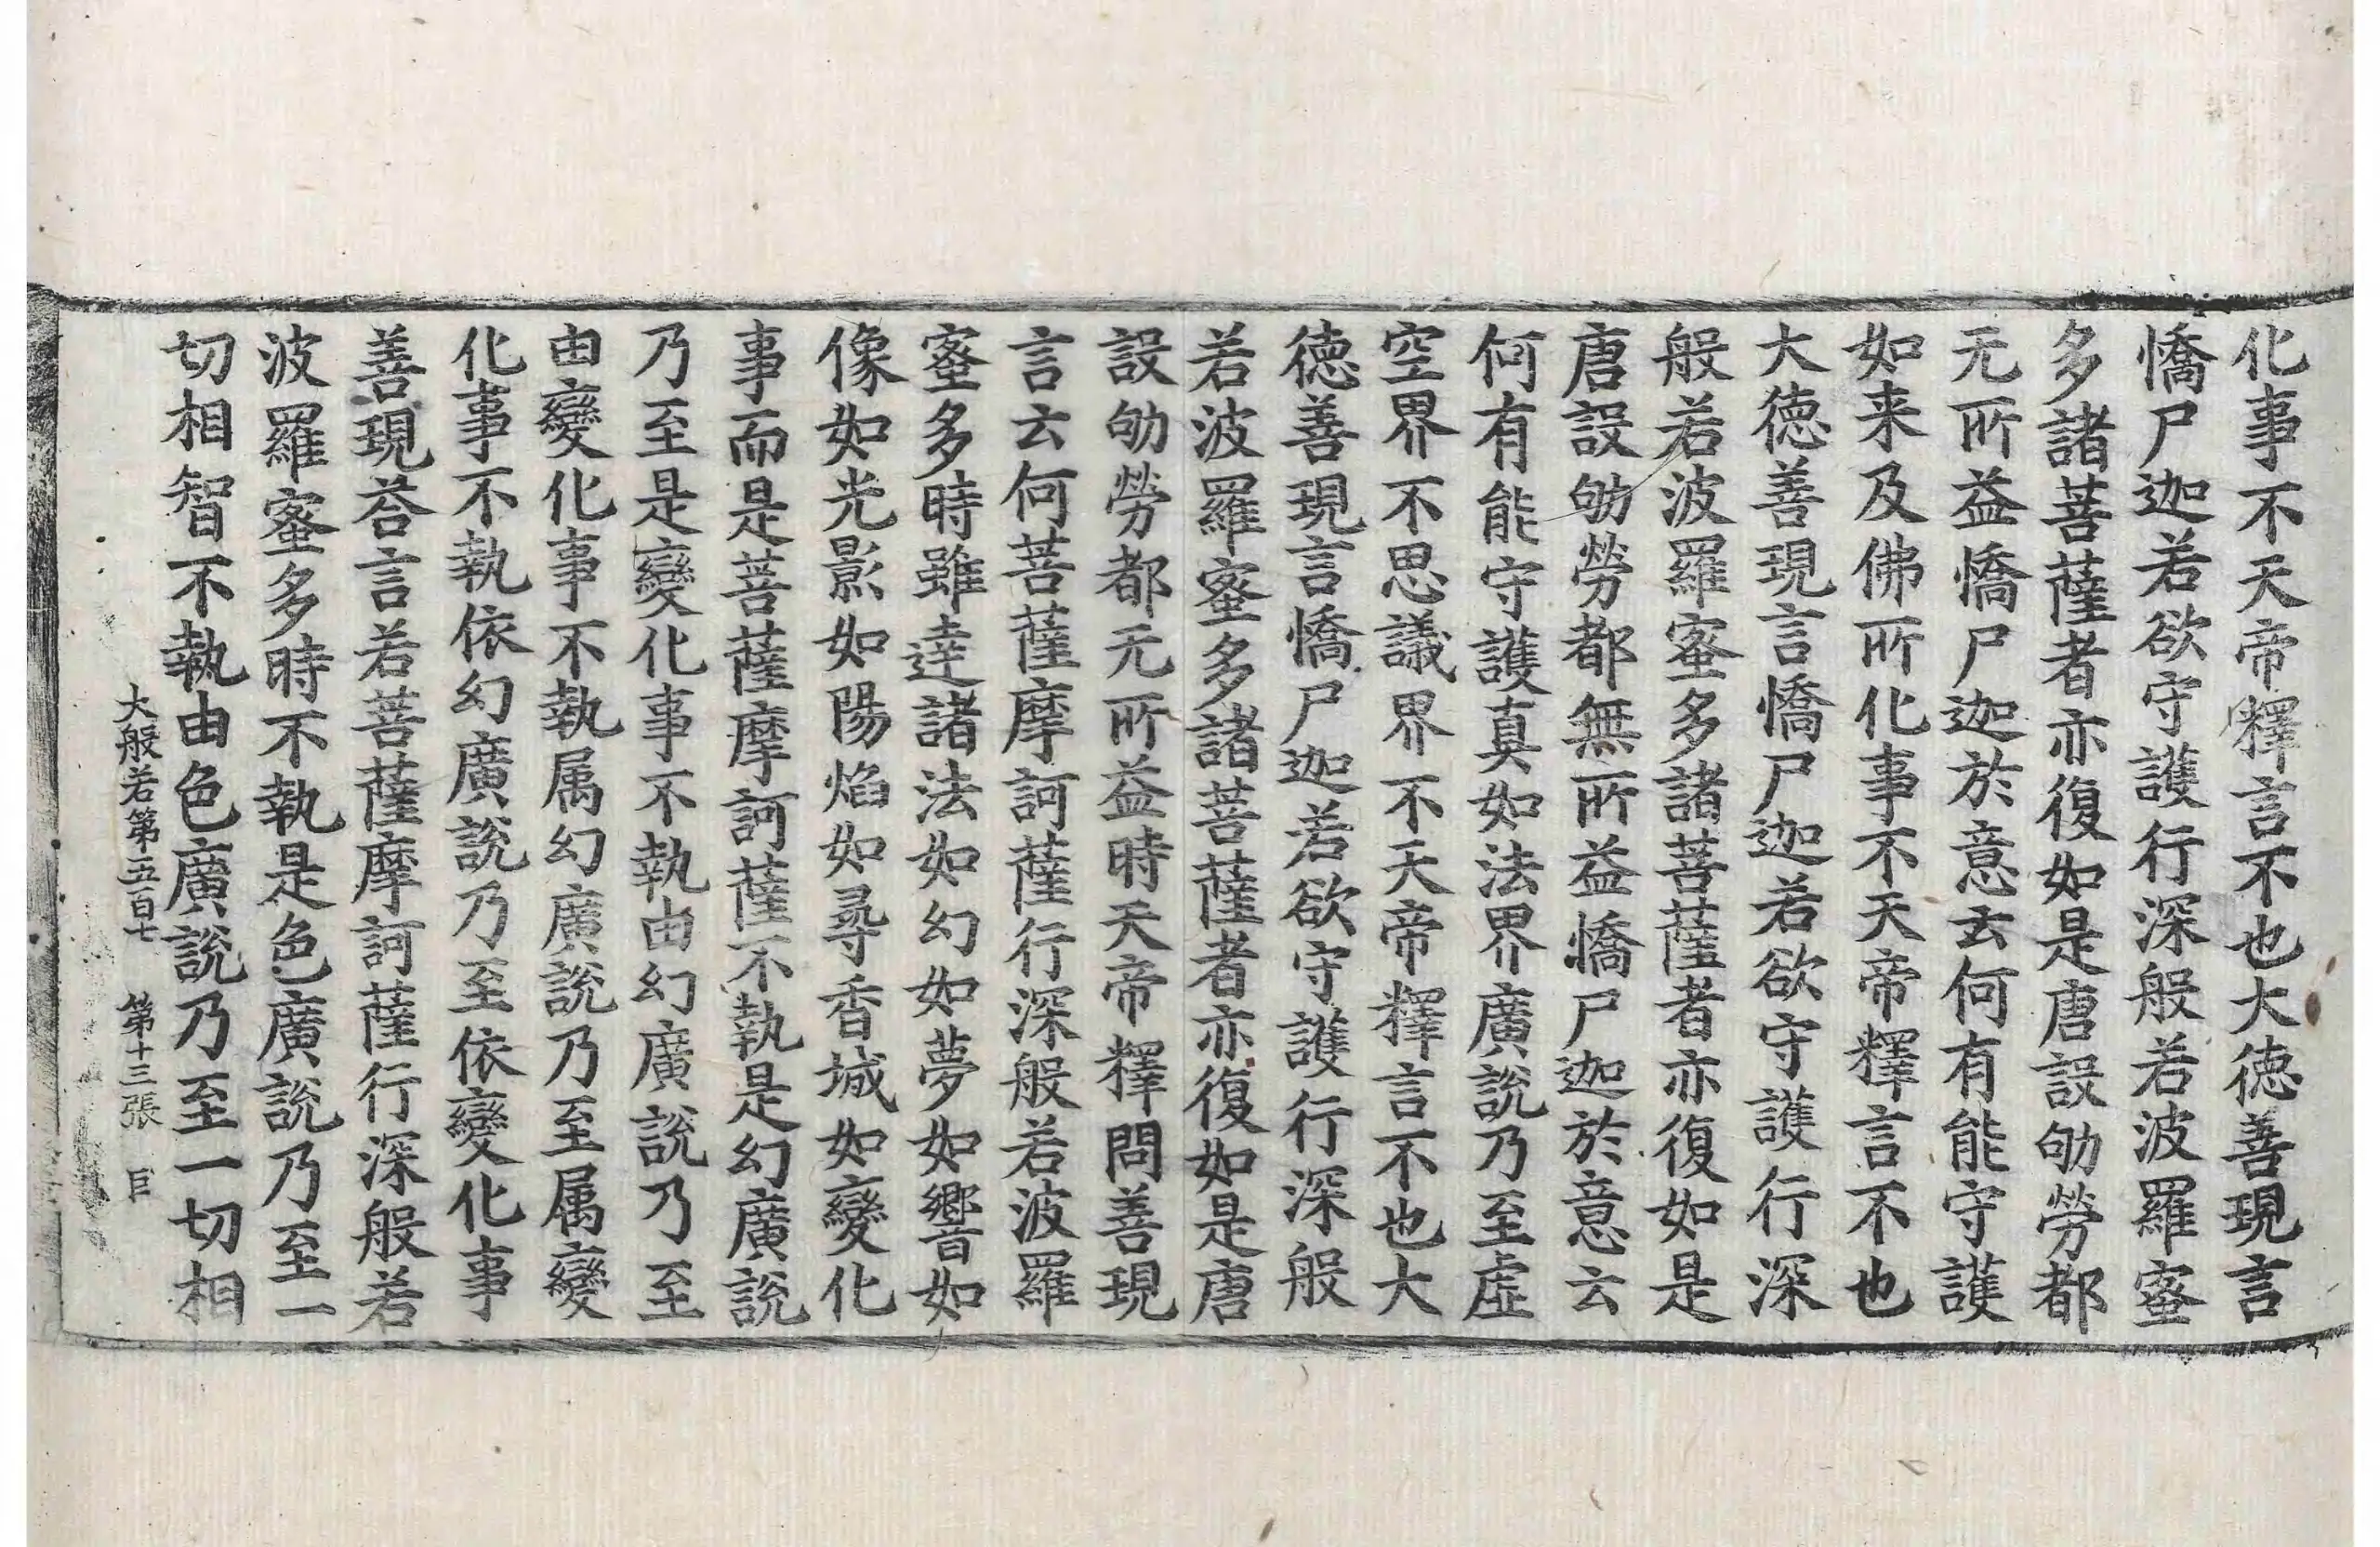 化事不天帝釋言不也大徳善現言
憍尸迦若欲守護行深般若波羅蜜
多諸菩薩者亦復如是唐設劬勞都
无所益憍尸迦於意云何有能守護
如来及佛所化事不天帝釋言不也
大徳善現言憍尸迦若欲守護行深
般若波羅蜜多諸菩薩者亦復如是
唐設劬勞都無所益憍尸迦於意云
何有能守護真如法界廣說乃至虛
空界不思議界不天帝釋言不也大
徳善現言憍尸迦若欲守護行深般
若波羅蜜多諸菩薩者亦復如是唐
設劬勞都无所益時天帝釋問善現
言云何菩薩摩訶薩行深般若波羅
蜜多時雖達諸法如幻如夢如響如
像如光影如陽焰如尋香城如變化
事而是菩薩摩訶薩不執是幻廣說
乃至是變化事不執由幻廣說乃至
由變化事不執属幻廣說乃至属變
化事不執依幻廣說乃至依變化事
善現荅言若菩薩摩訶薩行深般若
波羅蜜多時不執是色廣說乃至一
切相智不執由色廣說乃至一切相
大般若第五百七 第十三張 巨